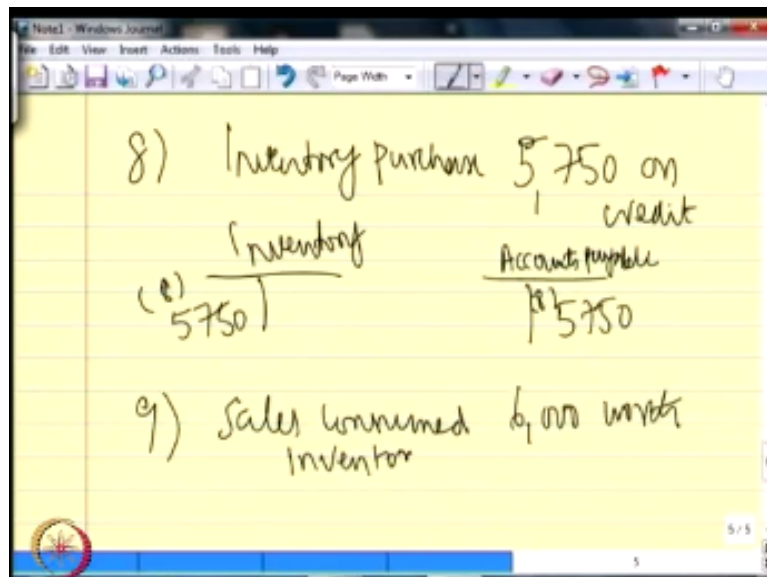 Note1 - Windows Journal
File Edit View Insert Actions Tools Help
Page Width
8) Inventory purchase 5,750 on
credit
Inventory
Accounts payable
(8) 5750
(8) 5750
9) Sales consumed 6,000 worth
inventor
5 / 5
5